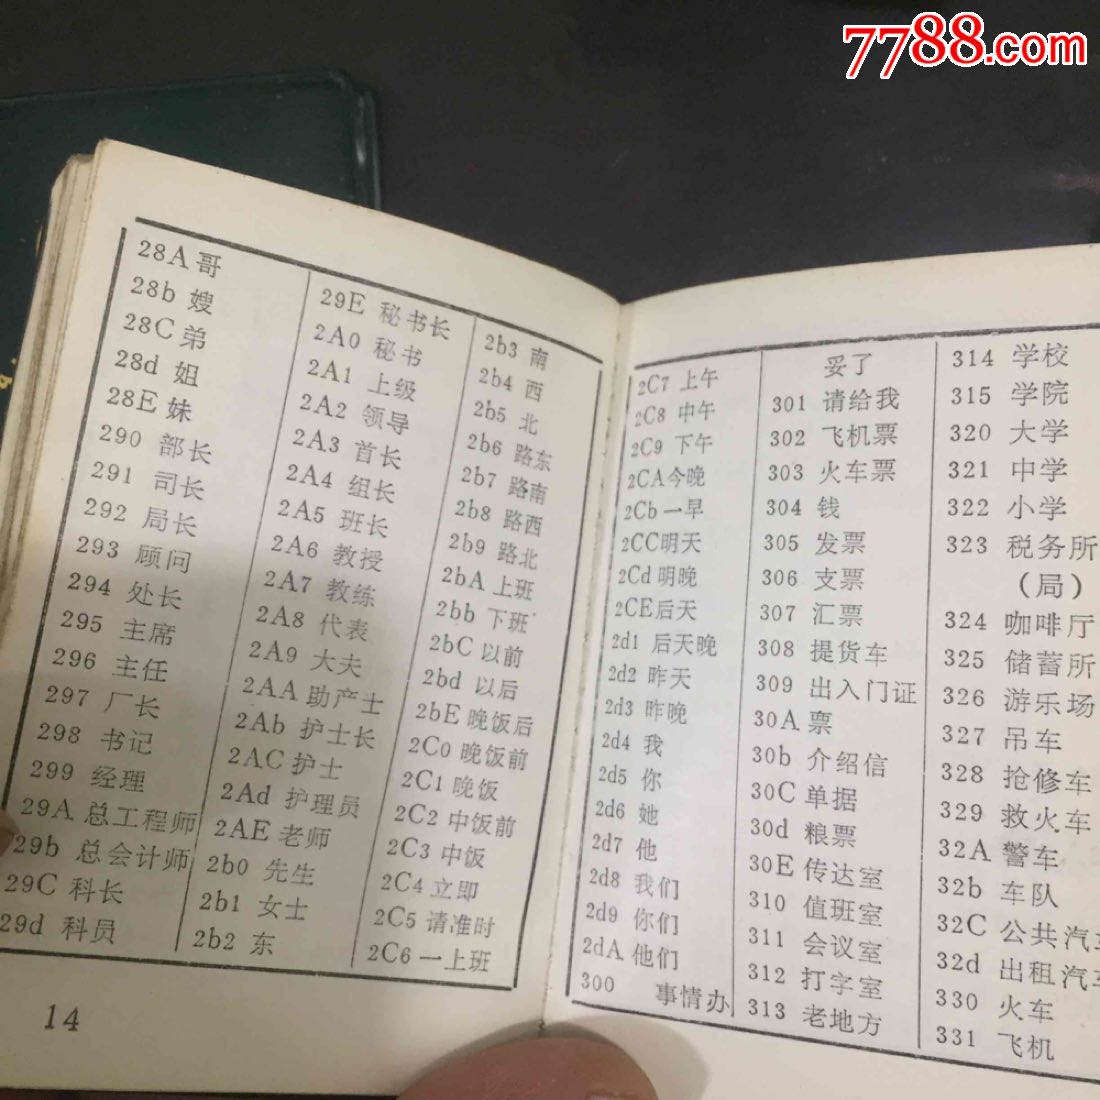 7788.com
28A 哥
28b 嫂
28C 弟
28d 姐
28E 妹
290 部长
291 司长
292 局长
293 顾问
294 处长
295 主席
296 主任
297 厂长
298 书记
299 经理
29A 总工程师
29b 总会计师
29C 科长
29d 科员
29E 秘书长
2A0 秘书
2A1 上级
2A2 领导
2A3 首长
2A4 组长
2A5 班长
2A6 教授
2A7 教练
2A8 代表
2A9 大夫
2AA 助产士
2Ab 护士长
2AC 护士
2Ad 护理员
2AE 老师
2b0 先生
2b1 女士
2b2 东
2b3 南
2b4 西
2b5 北
2b6 路东
2b7 路南
2b8 路西
2b9 路北
2bA 上班
2bb 下班
2bC 以前
2bd 以后
2bE 晚饭后
2C0 晚饭前
2C1 晚饭
2C2 中饭前
2C3 中饭
2C4 立即
2C5 请准时
2C6 一上班
14
2C7 上午
2C8 中午
2C9 下午
2CA 今晚
2Cb 一早
2CC 明天
2Cd 明晚
2CE 后天
2d1 后天晚
2d2 昨天
2d3 昨晚
2d4 我
2d5 你
2d6 她
2d7 他
2d8 我们
2d9 你们
2dA 他们
300 事情办
妥了
301 请给我
302 飞机票
303 火车票
304 钱
305 发票
306 支票
307 汇票
308 提货车
309 出入门证
30A 票
30b 介绍信
30C 单据
30d 粮票
30E 传达室
310 值班室
311 会议室
312 打字室
313 老地方
314 学校
315 学院
320 大学
321 中学
322 小学
323 税务所
（局）
324 咖啡厅
325 储蓄所
326 游乐场
327 吊车
328 抢修车
329 救火车
32A 警车
32b 车队
32C 公共汽车
32d 出租汽车
330 火车
331 飞机